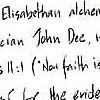 Elisabethan alchem
cian John Dee,
11:1 ("Now faith is
for the evide